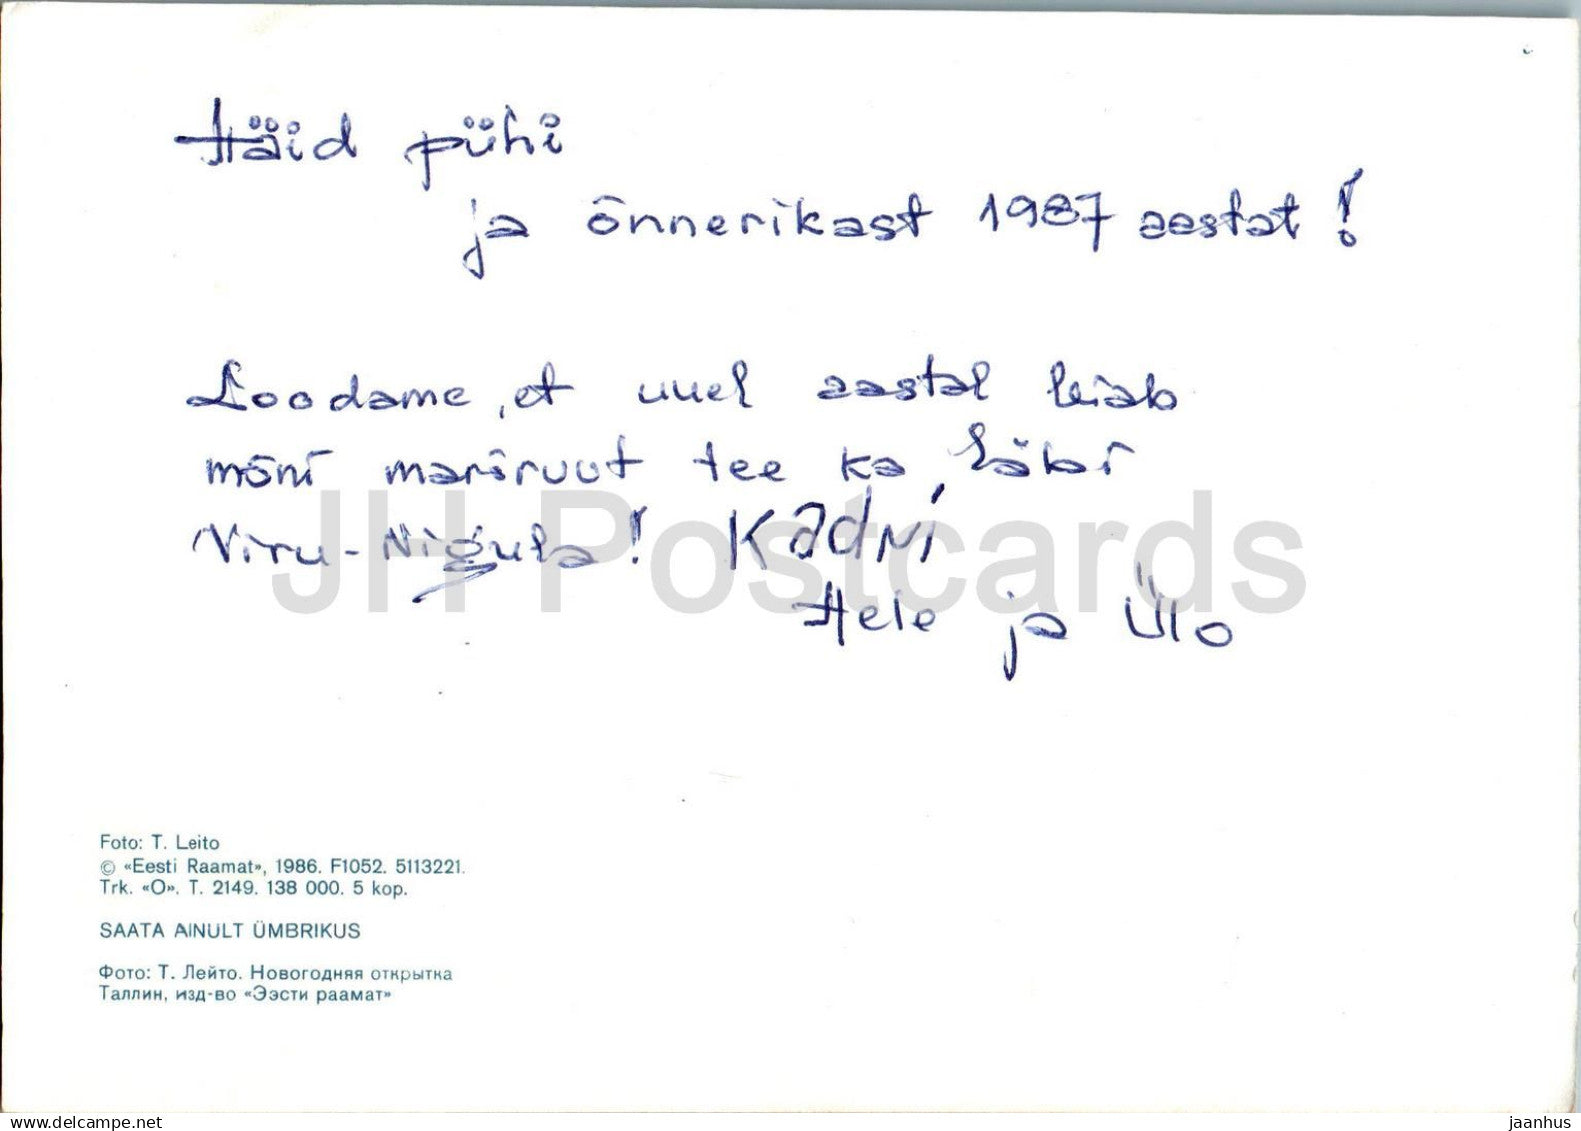 Häid pühi
ja õnnerikast 1987 aastat!
Loodame, et uuel aastal leiab
mõni marsruut tee ka läbi
Viru-Nigula! Kadri
Hele ja Ülo
JH Postcards
Foto: T. Leito
© «Eesti Raamat», 1986. F1052. 5113221.
Trk. «O». T. 2149. 138 000. 5 kop.
SAATA AINULT ÜMBRIKUS
Фото: Т. Лейто. Новогодняя открытка
Таллин, изд-во «Ээсти раамат»
www.delcampe.net
jaanhus